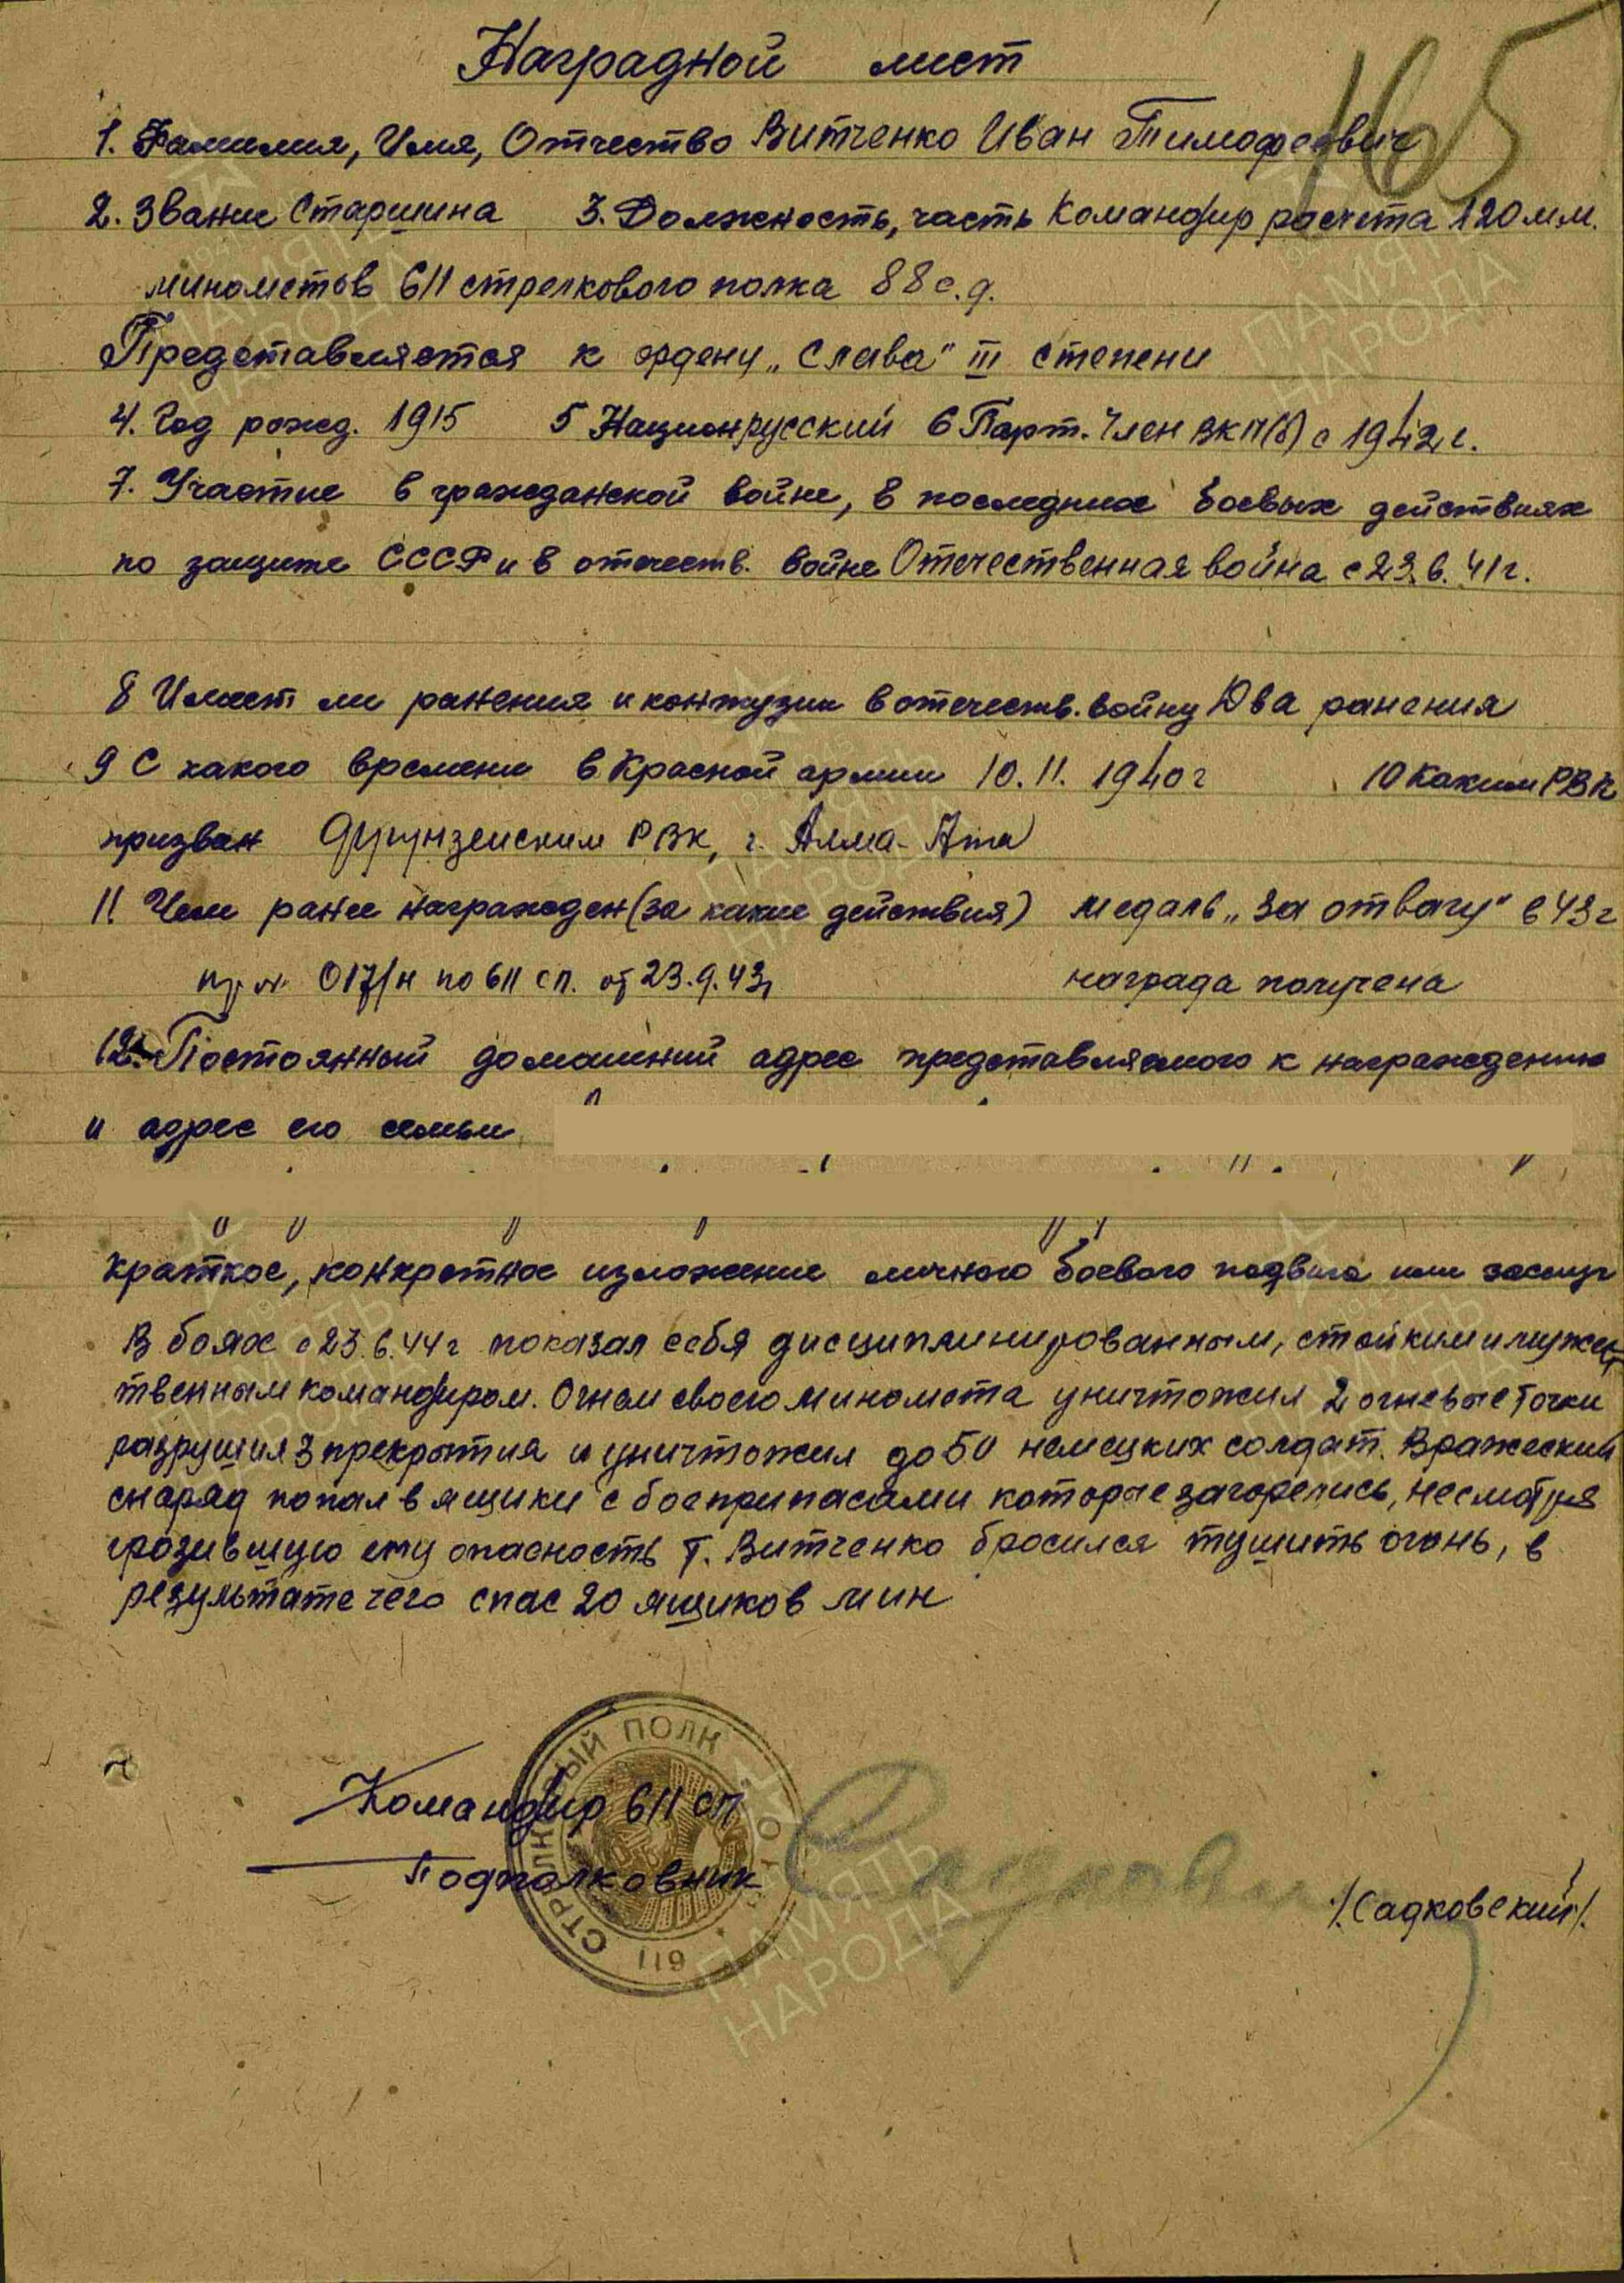 165
Наградной лист
1. Фамилия, Имя, Отчество Витченко Иван Тимофеевич
2. Звание Старшина 3. Должность, часть Командир расчета 120 м.м.
минометов 611 стрелкового полка 88 с.д.
Представляется к ордену „Слава" III степени
4. Год рожд. 1915 5 Национ русский 6 Парт. Член ВКП(б) с 1942 г.
7. Участие в гражданской войне, в последних боевых действиях
по защите СССР и в отечеств. войне Отечественная война с 23.6.41г.
8 Имеет ли ранения и контузии в отечеств. войну Два ранения
9 С какого времени в Красной армии 10.11.1940 г 10 Каким РВК
призван Фрунзенским РВК, г. Алма-Ата
11. Чем ранее награжден (за какие действия) медаль „За отвагу" в 43 г
пр. № 017/н по 611 сп. от 23.9.43г награда получена
12. Постоянный домашний адрес представляемого к награждению
и адрес его семьи
Краткое, конкретное изложение личного боевого подвига или заслуг
В боях с 23.6.44 г показал себя дисциплинированным, стойким и мужес
твенным командиром. Огнем своего миномета уничтожил 2 огневые точки
разрушил 3 прекрытия и уничтожил до 50 немецких солдат. Вражеский
снаряд попал в ящики с боеприпасами которые загорелись, несмотря
грозившую ему опасность т. Витченко бросился тушить огонь, в
результате чего спас 20 ящиков мин
Командир 611 сп
Подполковник
/Садковский/.
СТРЕЛКОВЫЙ ПОЛК
611
ПАМЯТЬ
НАРОДА